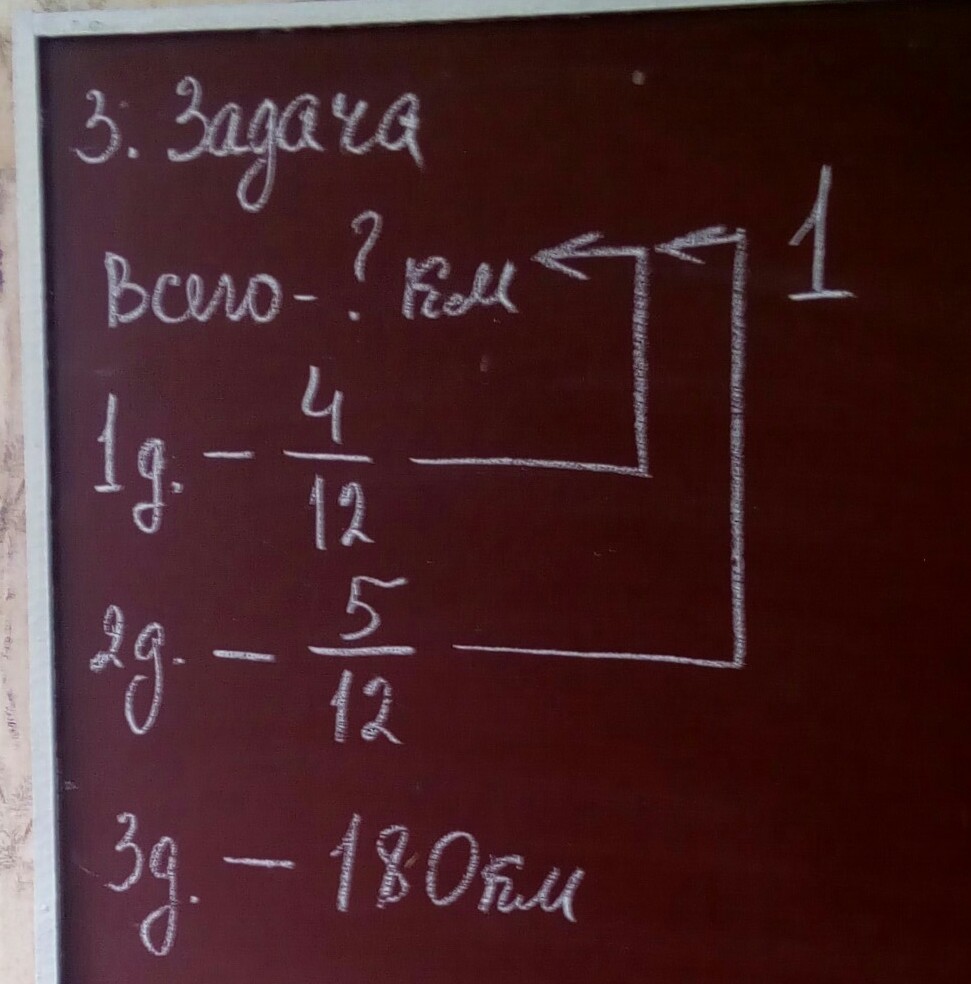 3. Задача
Всего - ? км 1
1д. - 4/12
2д. - 5/12
3д. - 180км